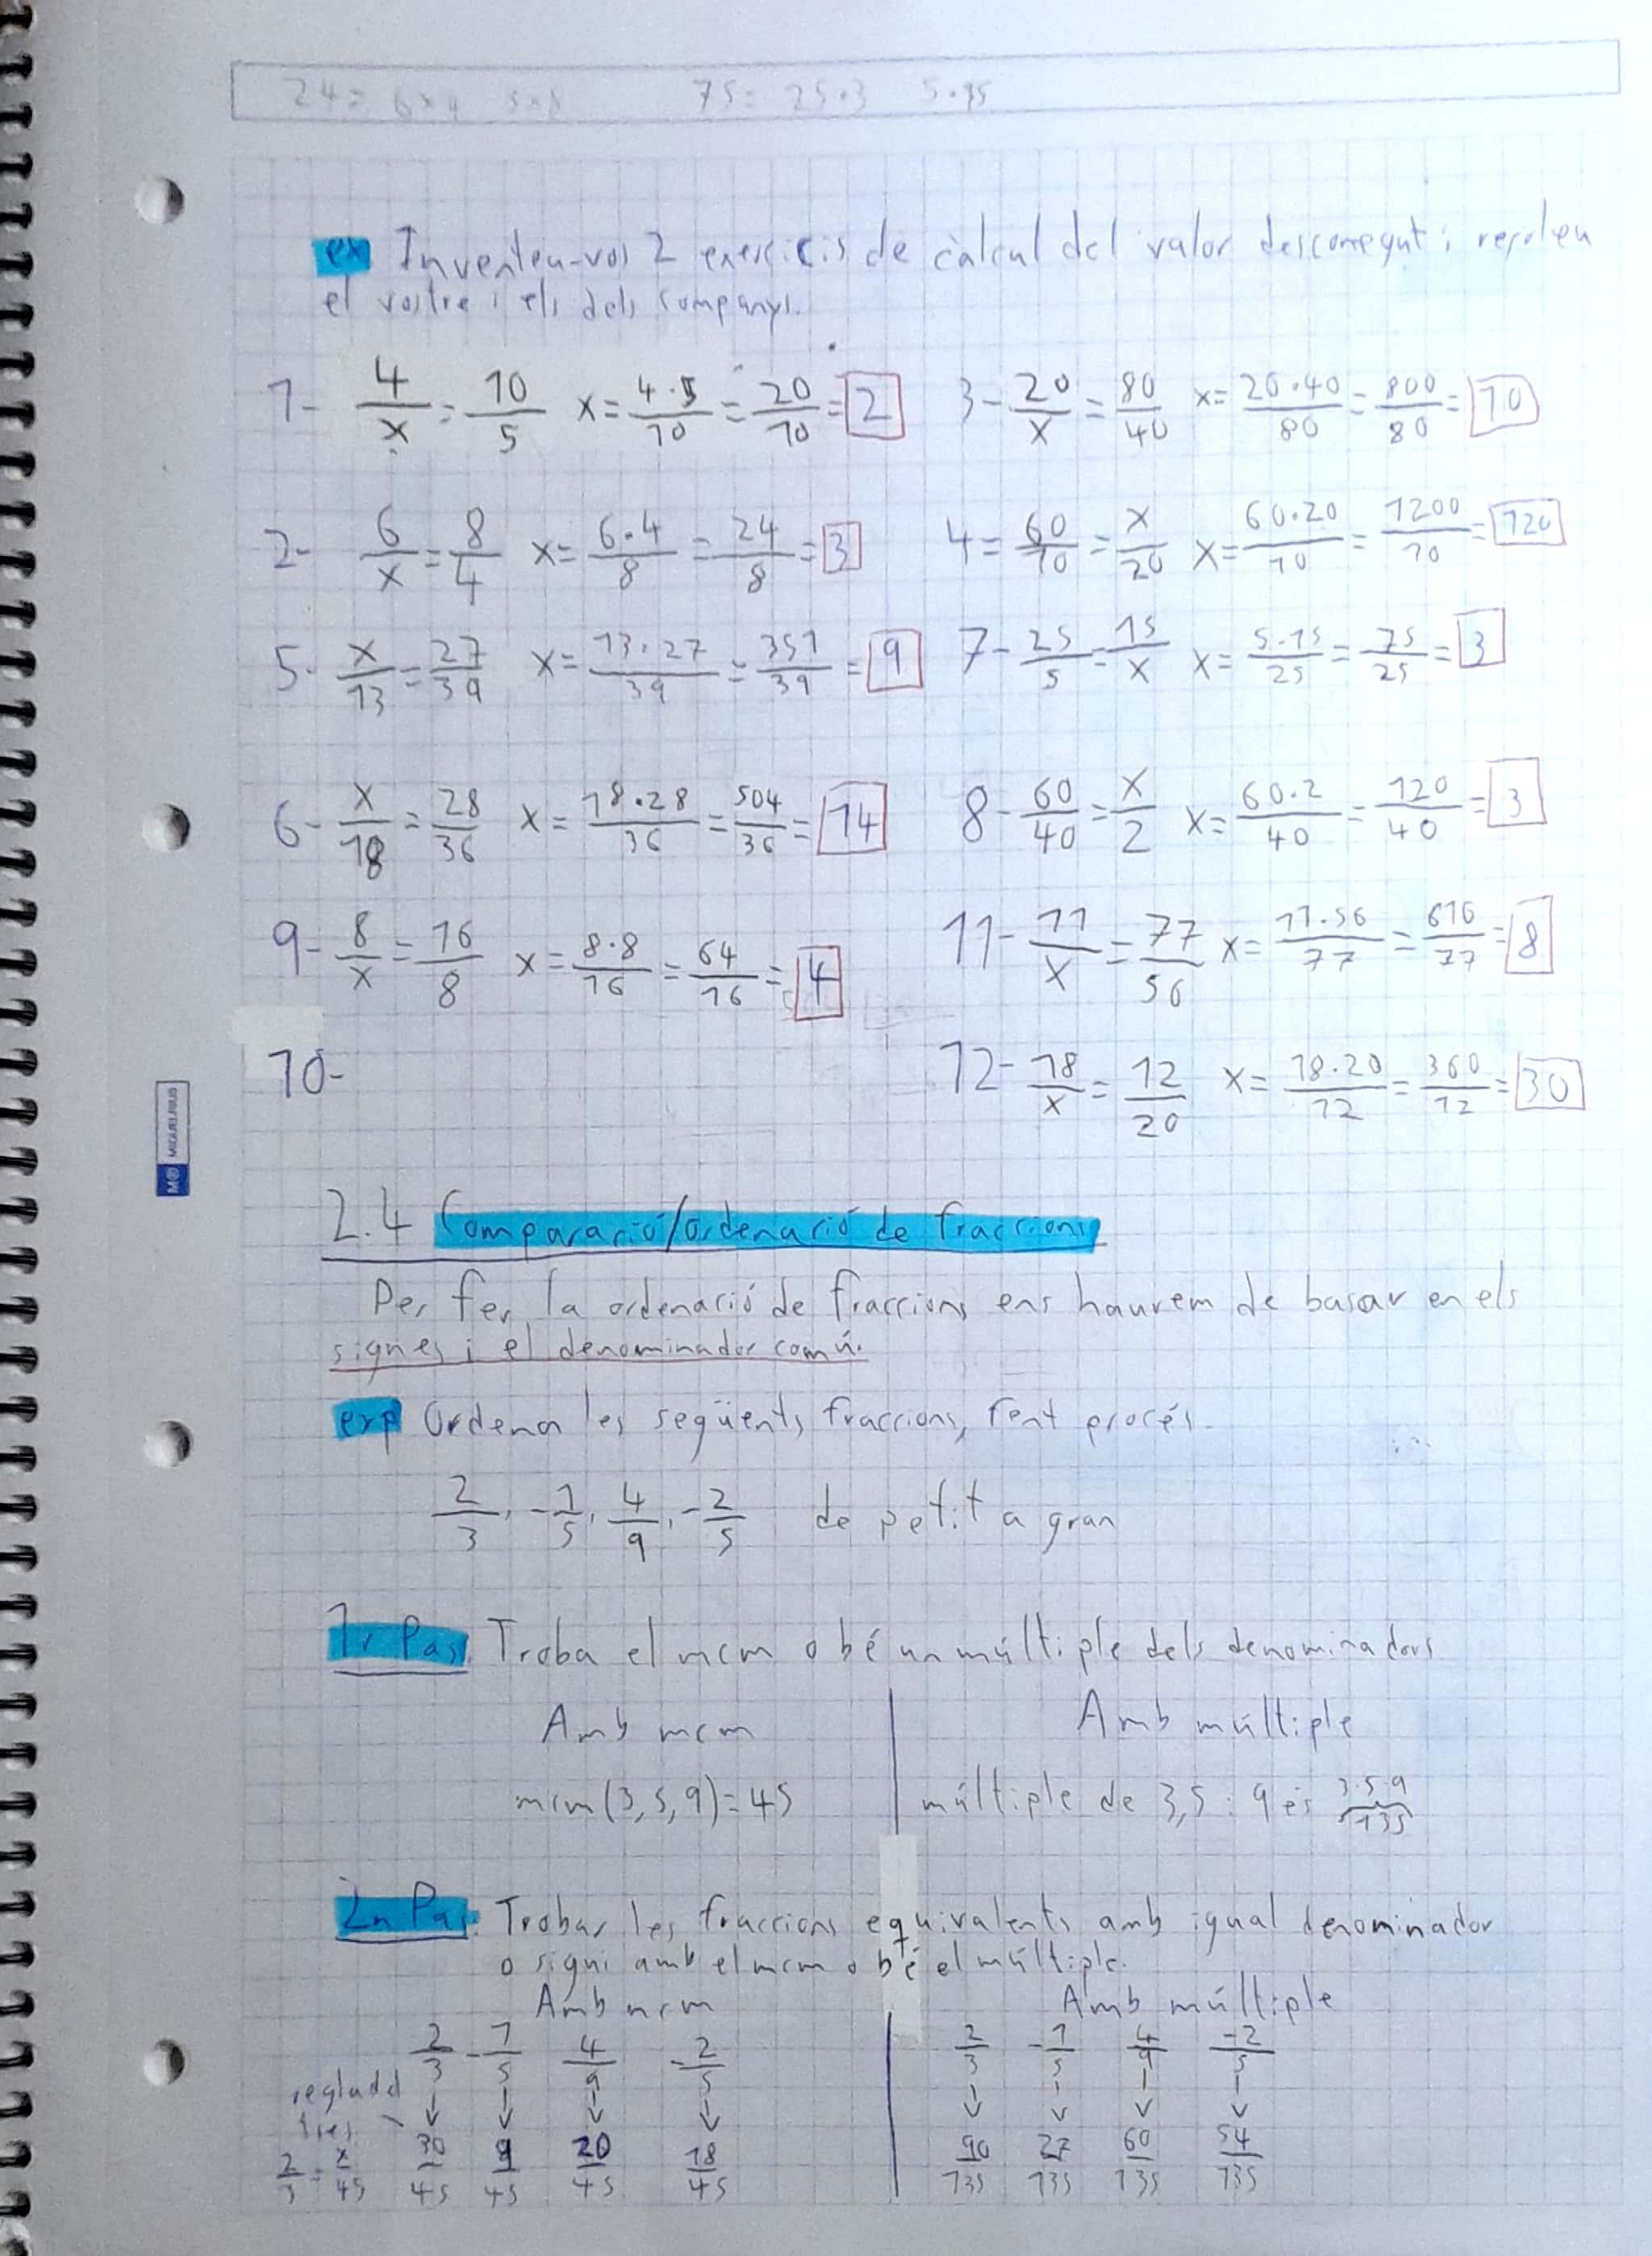 24= 6×4 75= 25·3
ex Inventeu-vos 2 exercicis de càlcul del valor desconegut i resoleu
el vostre i els dels companys.
1- 4/x = 10/5 x= 4·5/10 = 20/10 = 2 3- 20/x = 80/40 x= 20·40/80 = 800/80 = 10
2- 6/x = 8/4 x= 6·4/8 = 24/8 = 3 4= 60/10 = x/20 x= 60·20/10 = 1200/10 = 120
5- x/13 = 27/39 x= 13·27/39 = 351/39 = 9 7- 25/5 = 15/x x= 5·15/25 = 75/25 = 3
6- x/18 = 28/36 x= 18·28/36 = 504/36 = 14 8- 60/40 = x/2 x= 60·2/40 = 120/40 = 3
9- 8/x = 16/8 x= 8·8/16 = 64/16 = 4 11- 11/x = 77/56 x= 11·56/77 = 616/77 = 8
10- 12- 18/x = 12/20 x= 18·20/12 = 360/12 = 30
MIQUELRIUS
2.4 Comparació/ordenació de fraccions
Per fer la ordenació de fraccions ens haurem de basar en els
signes i el denominador comú.
exp Ordena les següents fraccions, fent procés.
2/3, -1/5, 4/9, -2/5 de petit a gran
1r Pas. Troba el mcm o bé un múltiple dels denominadors
Amb mcm Amb múltiple
mcm(3,5,9)=45 múltiple de 3,5 i 9 és 3·5·9
135
2n Pas. Trobar les fraccions equivalents amb igual denominador
o sigui amb el mcm o bé el múltiple.
Amb mcm Amb múltiple
2/3 -1/5 4/9 -2/5 2/3 -1/5 4/9 -2/5
regla de
tres
2/3 = x/45 30/45 9/45 20/45 18/45 90/135 27/135 60/135 54/135